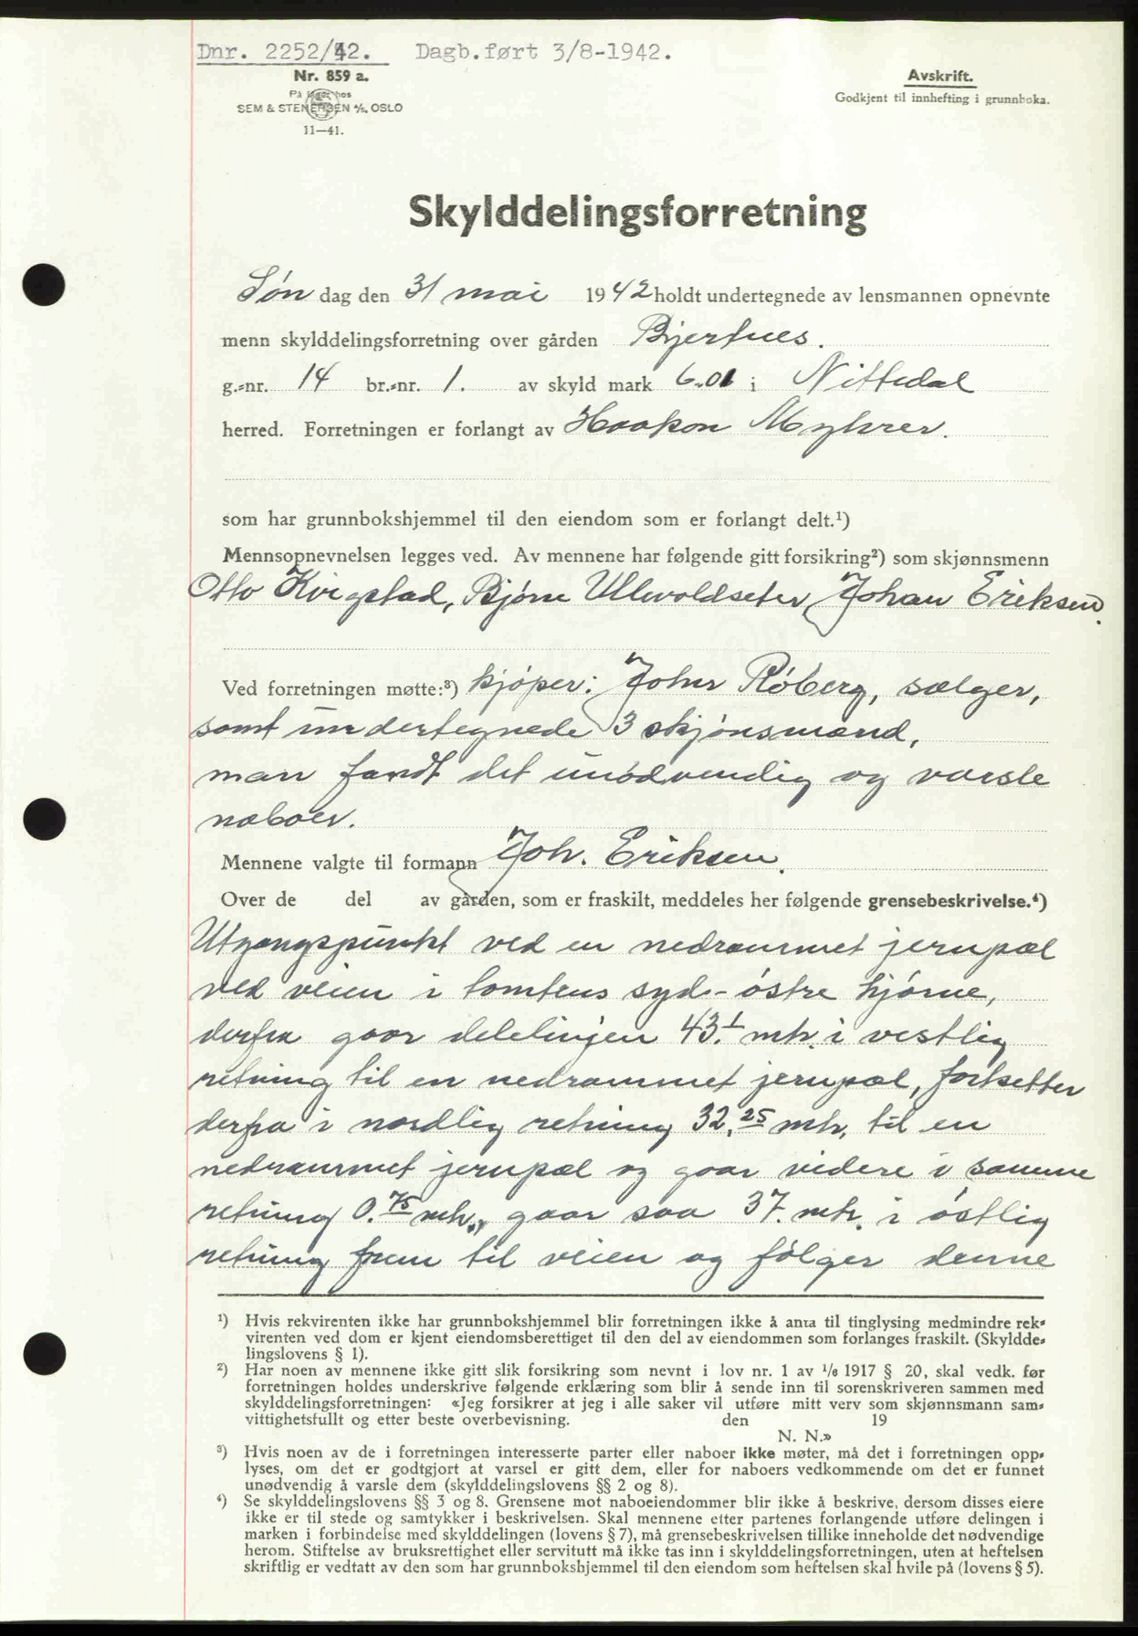 Dnr. 2252/42. Dagb.ført 3/8-1942.
Nr. 859 a.
På lager hos
SEM & STENERSEN A/S, OSLO
11—41.
Avskrift.
Godkjent til innhefting i grunnboka.
Skylddelingsforretning
Søn dag den 31 mai 1942 holdt undertegnede av lensmannen opnevnte
menn skylddelingsforretning over gården Bjertnes.
g.-nr. 14 br.-nr. 1. av skyld mark 6.01 i Nittedal
herred. Forretningen er forlangt av Haakon Myhrer.
som har grunnbokshjemmel til den eiendom som er forlangt delt.¹)
Mennsopnevnelsen legges ved. Av mennene har følgende gitt forsikring²) som skjønnsmenn
Otto Kvigstad, Bjørn Ulvoldseter, Johan Eriksen.
Ved forretningen møtte:³) kjøper: John Røberg, sælger,
samt undertegnede 3 skjønsmænd,
man fandt det unødvendig og varsle
naboer.
Mennene valgte til formann Joh. Eriksen.
Over de del av gården, som er fraskilt, meddeles her følgende grensebeskrivelse.⁴)
Utgangspunkt ved en nedrammet jernpæl
ved veien i tomtens syd-østre hjørne,
derfra gaar delelinjen 43.1 mtr. i vestlig
retning til en nedrammet jernpæl, fortsetter
derfra i nordlig retning 32,25 mtr. til en
nedrammet jernpæl og gaar videre i samme
retning 0.75 mtr., gaar saa 37. mtr. i østlig
retning frem til veien og følger denne
¹) Hvis rekvirenten ikke har grunnbokshjemmel blir forretningen ikke å anta til tinglysing medmindre rek-
virenten ved dom er kjent eiendomsberettiget til den del av eiendommen som forlanges fraskilt. (Skyldde-
lingslovens § 1).
²) Har noen av mennene ikke gitt slik forsikring som nevnt i lov nr. 1 av 1/6 1917 § 20, skal vedk. før
forretningen holdes underskrive følgende erklæring som blir å sende inn til sorenskriveren sammen med
skylddelingsforretningen: «Jeg forsikrer at jeg i alle saker vil utføre mitt verv som skjønnsmann sam-
vittighetsfullt og etter beste overbevisning. den 19
N. N.»
³) Hvis noen av de i forretningen interesserte parter eller naboer ikke møter, må det i forretningen opp-
lyses, om det er godtgjort at varsel er gitt dem, eller for naboers vedkommende om det er funnet
unødvendig å varsle dem (skylddelingslovens §§ 2 og 8).
⁴) Se skylddelingslovens §§ 3 og 8. Grensene mot naboeiendommer blir ikke å beskrive, dersom disses eiere
ikke er til stede og samtykker i beskrivelsen. Skal mennene etter partenes forlangende utføre delingen i
marken i forbindelse med skylddelingen (lovens § 7), må grensebeskrivelsen tillike inneholde det nødvendige
herom. Stiftelse av bruksrettighet eller servitutt må ikke tas inn i skylddelingsforretningen, uten at heftelsen
skriftlig er vedtatt av den som har grunnbokshjemmel til den eiendom som heftelsen skal hvile på (lovens § 5).